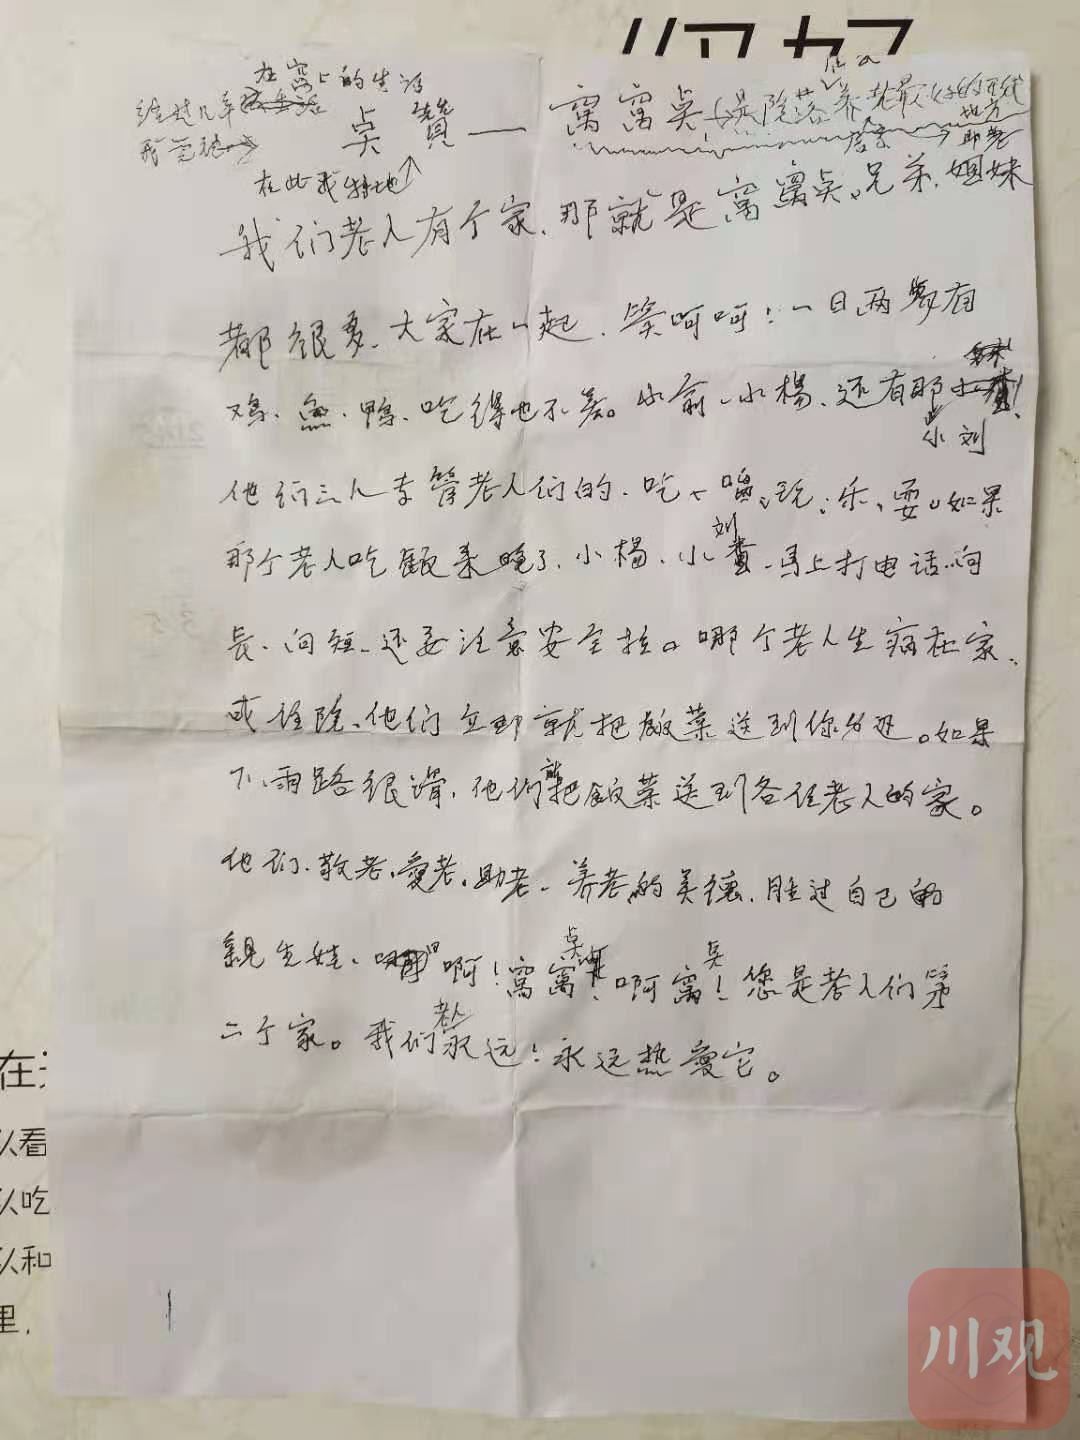 在窝上的生活
经过几年
我觉得
在此我特地
点赞——窝窝点是院落养老最好的
地方
我们老人有个家、那就是窝窝点。兄弟、姐妹
都很多、大家在一起、笑呵呵！一日两餐有
鸡、魚、鸭、吃得也不差。小俞、小楊、还有那
小刘
他们三人专管老人们的、吃、喝、玩、乐、耍。如果
那个老人吃飯来晚了、小楊、小刘、马上打电话、问
长、问短、还要注意安全拉。哪个老人生病在家、
或住院、他们立即就把飯菜送到你身边。如果
下雨路很滑、他们就把飯菜送到各位老人的家。
他们、敬老、愛老、助老、养老的美德、胜过自己的
親生娃、啊！窝窝点！啊窝点！您是老人们第
二个家。我们老人永远！永远热愛它。
在
从看
从吃
从和
里，
川观